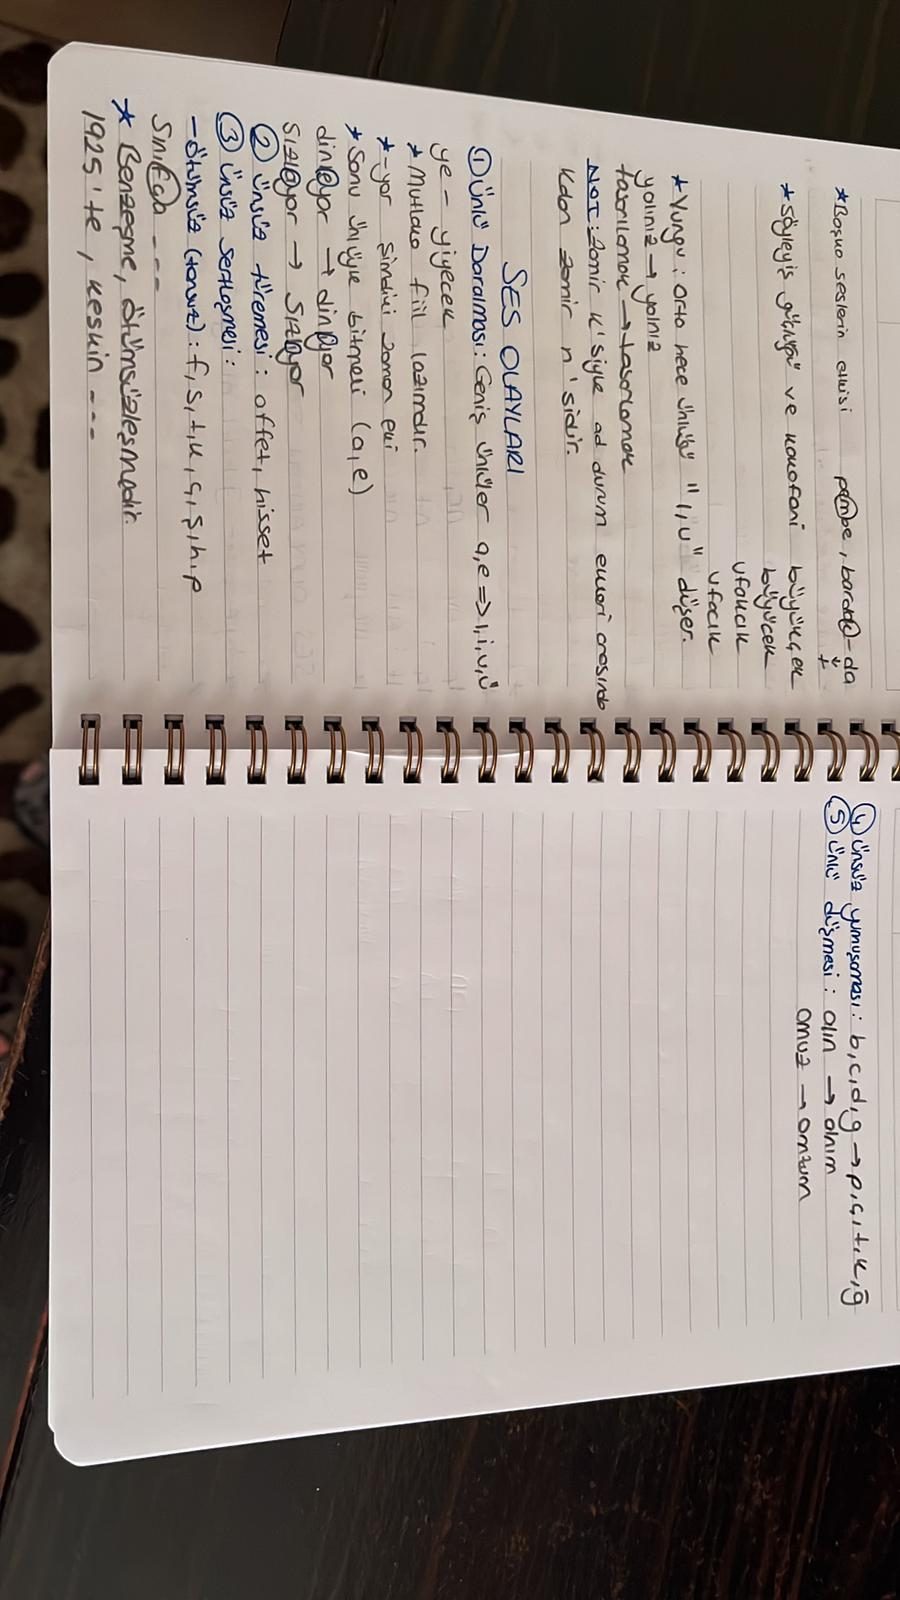 *Başka seslerin etkisi pembe, bardak-da
t
*Söyleyiş güçlüğü ve kakofoni büyükçek
büyücek
ufakcık
ufacık
*Vurgu: orta hece ünlüsü "ı, u" düşer.
yalınız → yalnız
tasarılamak → tasarlamak
NOT: zamir k'siyle ad durum ekleri arasında
kalan zamir n'sidir.
SES OLAYLARI
① Ünlü Daralması: Geniş ünlüler a, e => ı, i, u, ü
ye- yiyecek
*Mutlaka fiil lazımdır.
*-yor şimdiki zaman eki
*Sonu ünlüyle bitmeli (a, e)
dinleyor → dinliyor
sızlayor → sızlıyor
② Ünsüz türemesi: affet, hisset
③ Ünsüz sertleşmesi:
- Ötümsüz (tonsuz): f, s, t, k, ç, ş, h, p
Sınıfta ---
* Benzeşme, ötümsüzleşmedir.
1925'te, keskin ---
④ Ünsüz yumuşaması: b, c, d, g → p, ç, t, k, ğ
⑤ Ünlü düşmesi: alın → alnım
omuz → omzum